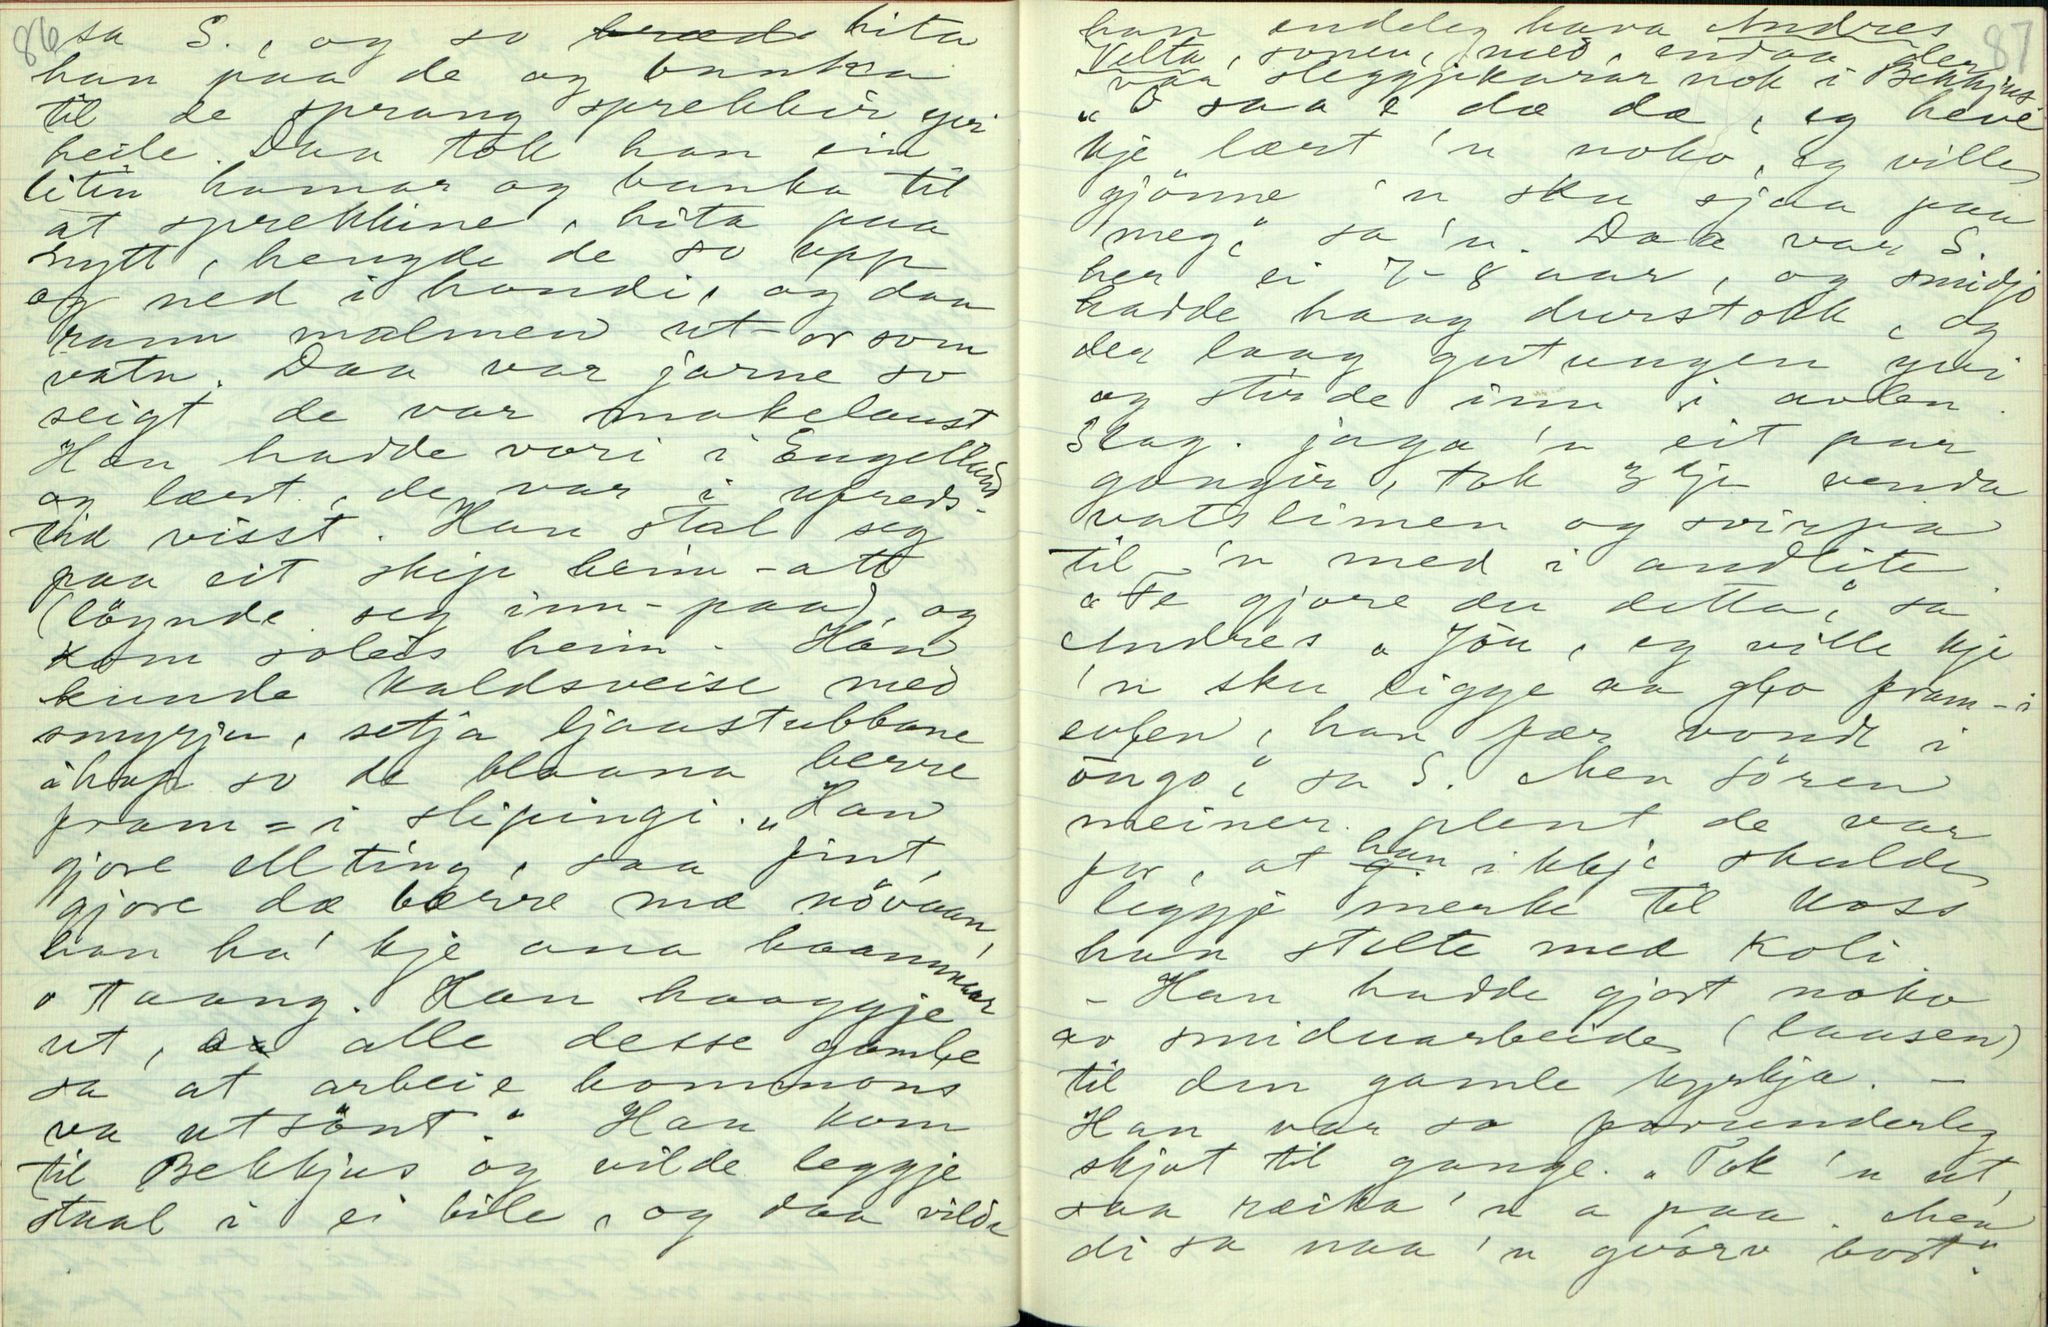 86
sa S., og so hita
han paa de og bunka
til de sprang sprekkir yvi
heile. Daa tok han ein
liten hamar og banka til
at sprekkine, hita paa
nytt, hengde de so upp
og ned i handi, og daa
rann malmen ut-or som
vatn. Daa var jarne so
seigt de var makelaust
Han hadde vori i Engelland
og lært, de var i ufreds-
tid visst. Han stal seg
paa eit skip heim-att
(löynde seg inn-paa) og
kom soleis heim. Han
kunde kaldsveise med
smyrju, setja ljaastubbane
ihop so de blaana berre
fram-i slipingi. "Han
gjore allting, saa fint,
gjore dæ bærre mæ növaan,
han ha' kje ana haammaar
o taang. Han haaggje
ut, alle desse gamle
sa at arbeie hommons
va utsönt." Han kom
til Bekkjus og vilde leggje
staal i ei bile, og daa vilde
87
han endeleg hava Andres
Velta, sonen, med, endaa der
var sleggjekarar nok i Bekkjus.
"O saa æ dæ dæ, eg heve
kje lært 'n noko, eg ville
gjönne 'n sku sjaa paa
meg," sa 'n. Daa var S.
her ei 7-8 aar, og smidjo
hadde haag durstokk, og
der laag gutungen yvi
og stirde inn i avlen.
Slag. jaga 'n eit par
gangir, tok kje venda
vatslimen og svirpa
til 'n med i andlite.
"Fe gjore du detta," sa
Andres "Jöu, eg ville kje
'n sku ligge aa glo fram-i
evlen, han fær vondt i
öugo," sa S. Men Sören
meiner plent de var
for, at han ikkje skulde
leggje merke til koss
han stelte med koli.
- Han hadde gjort noko
av smiduarbeide (laasen)
til den gamle kyrkja. -
Han var so forunderleg
skjot til gange. "Tok 'n ut,
saa ræika 'n a paa. Men
di sa naa 'n gvarv bort".